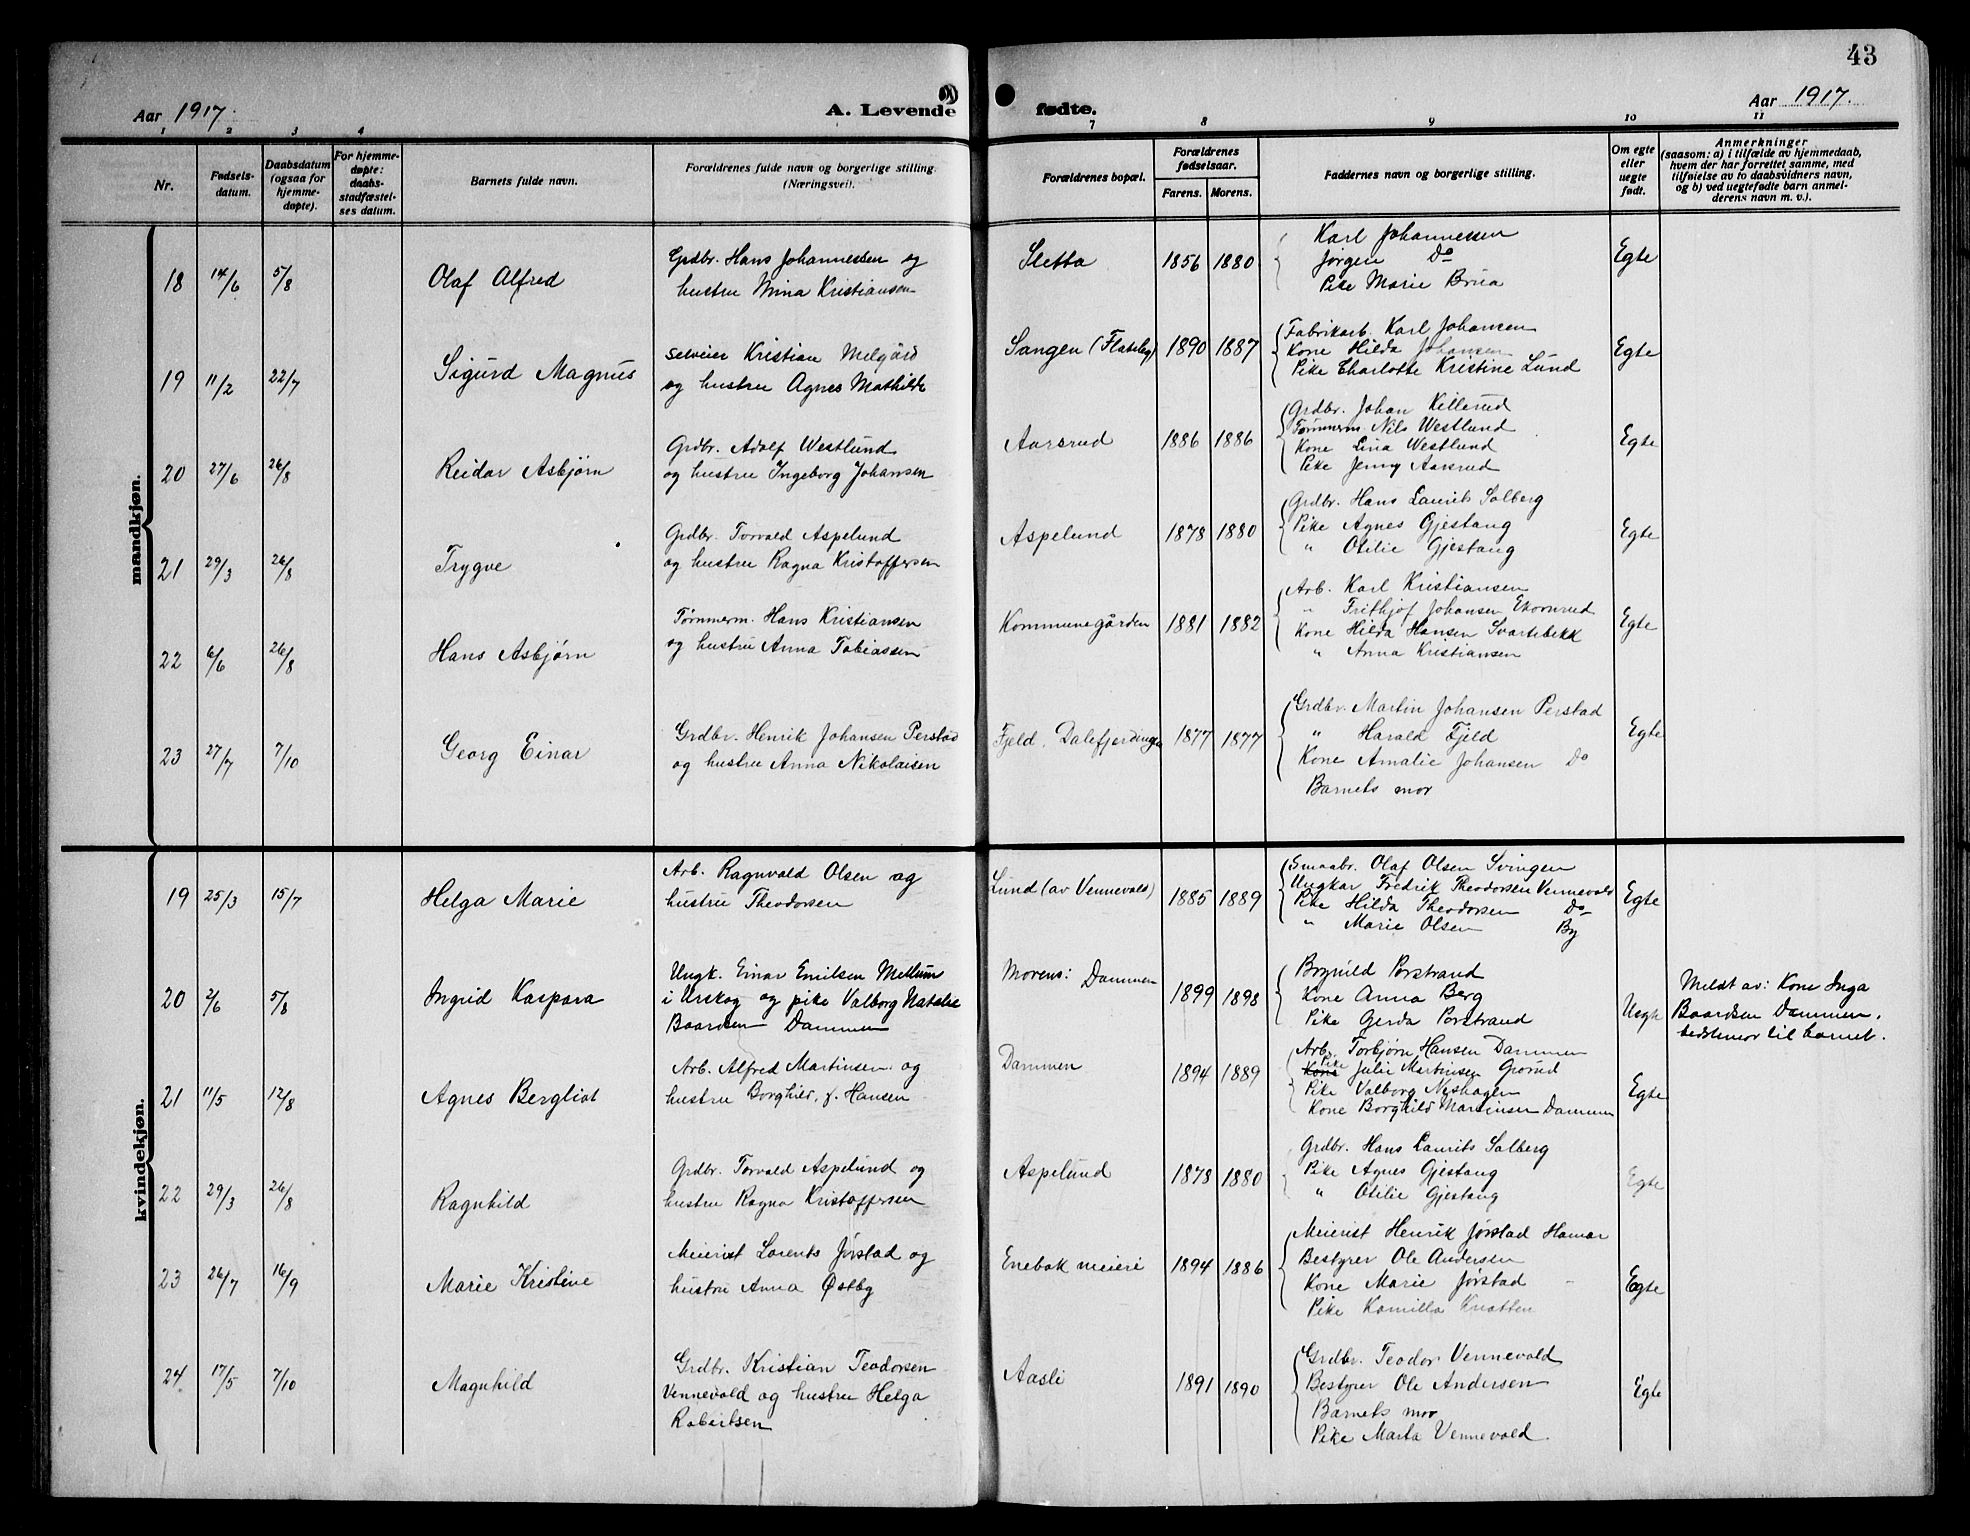 43
Aar 1917.
A. Levende fødte.
Aar 1917.
1 2 3 4 7 8 9 10 11
Nr.
Fødsels-
datum.
Daabsdatum
(ogsaa for
hjemme-
døpte).
For hjemme-
døpte:
daabs-
stadfæstel-
ses datum.
Barnets fulde navn.
Forældrenes fulde navn og borgerlige stilling.
(Næringsvei).
Forældrenes bopæl.
Forældrenes
fødselsaar.
Farens. Morens.
Faddernes navn og borgerlige stilling.
Om egte
eller
uegte
født.
Anmerkninger
(saasom: a) i tilfælde av hjemmedaab,
hvem der har forrettet samme, med
tilføielse av to daabsvidners navn,
og b) ved uegtefødte barn anmel-
derens navn m. v.).
mandkjøn.
18 14/6 5/8 Olaf Alfred
Grdbr. Hans Johannessen og
hustru Mina Kristiansen
Sletta 1856 1880
Karl Johannessen
Jørgen Do
Pike Marie Brua
Egte
19 11/2 22/7 Sigurd Magnus
Selveier Kristian Melgård
og hustru Agnes Mathilde
Sangen (Flateby) 1890 1887
Fabrikarb. Karl Johansen
Kone Hilda Johansen
Pike Charlotte Kristine Lund
Egte
20 27/6 26/8 Reidar Asbjørn
Grdbr. Adolf Westlund
og hustru Ingeborg Johansen
Aarsrud 1886 1886
Grdbr. Johan Killerud
Tømmerm. Nils Westlund
Kone Lina Westlund
Pike Jenny Aarsrud
Egte
21 29/3 26/8 Trygve
Grdbr. Torvald Aspelund
og hustru Ragna Kristoffersen
Aspelund 1878 1880
Grdbr. Hans Laurits Solberg
Pike Agnes Gjestang
" Otilie Gjestang
Egte
22 6/6 26/8 Hans Asbjørn
Tømmerm. Hans Kristiansen
og hustru Anna Tobiassen
Kommunegården 1881 1882
Arb. Karl Kristiansen
" Frithjof Johansen Ekornrud
Kone Hilda Hansen Svartebekk
" Anna Kristiansen
Egte
23 27/7 7/10 Georg Einar
Grdbr. Henrik Johansen Perstad
og hustru Anna Nikolaisen
Fjeld, Dalefjerdingen 1877 1877
Grdbr. Martin Johansen Perstad
" Harald Fjeld
Kone Amalie Johansen Do
Barnets mor
Egte
kvindekjøn.
19 25/3 15/7 Helga Marie
Arb. Ragnvald Olsen og
hustru Theodorsen
Lund (av Vennevald) 1885 1889
Smaabr. Olaf Olsen Svingen
Ungkar Fredrik Theodorsen Vennevald
Pike Hilda Theodorsen Do
" Marie Olsen By
Egte
20 2/6 5/8 Ingrid Kaspara
Ungk. Einar Emilsen Mellum
i Urskog og pike Valborg Natalie
Baardsen Dammen
Morens: Dammen 1899 1898
Brynild Porstrand
Kone Anna Berg
Pike Gerda Porstrand
Uegte
Meldt av: Kone Inga
Baardsen Dammen,
bedstemor til barnet.
21 11/5 12/8 Agnes Bergliot
Arb. Alfred Martinsen og
hustru Borghild, f. Hansen
Dammen 1894 1889
Arb. Torbjørn Hansen Dammen
Kone Pike Julie Martinsen Grorud
Pike Valborg Neshagen
Kone Borghild Martinsen Dammen
Egte
22 29/3 26/8 Ragnhild
Grdbr. Torvald Aspelund og
hustru Ragna Kristoffersen
Aspelund 1878 1880
Grdbr. Hans Laurits Solberg
Pike Agnes Gjestang
" Otilie Gjestang
Egte
23 26/7 16/9 Marie Kristine
Meierist Lorents Jørstad og
hustru Anna Østby
Enebak meieri 1894 1886
Meierist Henrik Jørstad Hamar
Bestyrer Ole Andersen
Kone Marie Jørstad
Pike Kamilla Knatten
Egte
24 17/5 7/10 Magnhild
Grdbr. Kristian Teodorsen
Vennevald og hustru Helga
Robertsen
Aasli 1891 1890
Grdbr. Teodor Vennevald
Bestyrer Ole Andersen
Barnets mor
Pike Marta Vennevald.
Egte